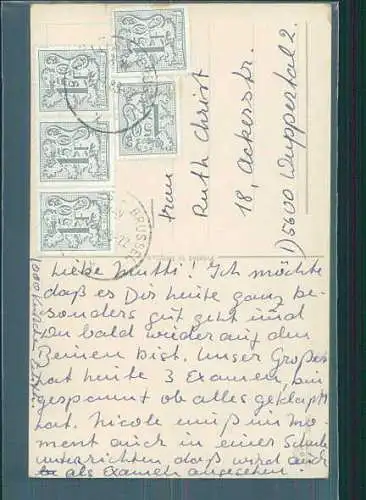 1F50
1F50
1F50
1F50
1F50
BRUSSEL
Frau
Ruth Christ
18, Ackerstr.
5600 Wuppertal 2.
Liebe Mutti! Ich möchte
daß es Dir heute ganz be-
sonders gut geht und
Du bald wieder auf den
Beinen bist. Unser Großer
hat heute 3 Examen, bin
gespannt ob alles geklappt
hat. Nicole muß im Mo-
ment auch in einer Schule
unterrichten, daß wird auch
als Examen angesehen!
1000